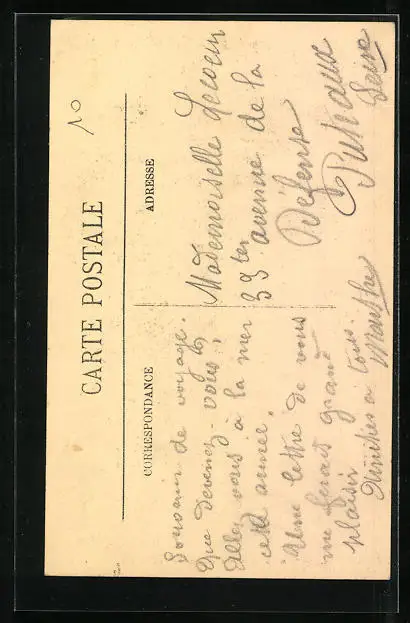 10
CARTE POSTALE
CORRESPONDANCE
ADRESSE
Souvenir de voyage.
Que devenez-vous ?
Allez vous à la mer
cette année.
Une lettre de vous
me ferait grand
plaisir
Amitiés à tous.
Marthe
Mademoiselle Lecoeur
33 ter avenue de la
Défense
Puteaux
Seine